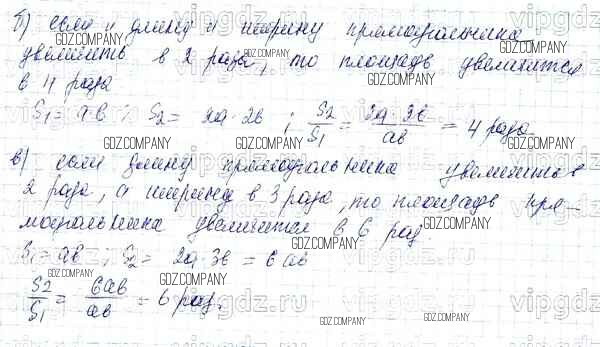 б) если и длину и ширину прямоугольника
увеличить в 2 раза, то площадь увеличится
в 4 раза
S₁ = ab ; S₂ = 2a·2b ; S₂/S₁ = 2a·2b/ab = 4 раза
в) если длину прямоугольника увеличить в
2 раза, а ширину в 3 раза, то площадь пря-
моугольника увеличится в 6 раз.
S₁ = ab ; S₂ = 2a·3b = 6ab
S₂/S₁ = 6ab/ab = 6 раз.